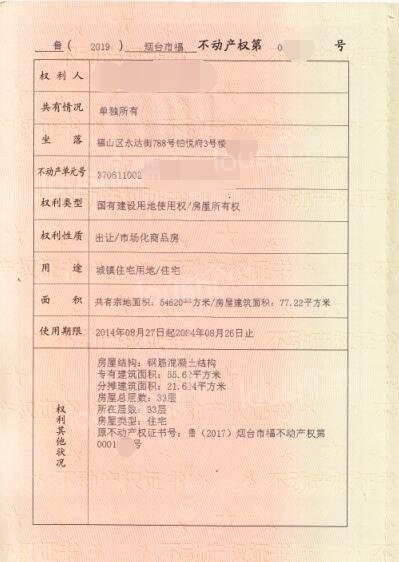 鲁（ 2019 ） 烟台市福 不动产权第 0 号
权利人
共有情况 单独所有
坐落 福山区永达街788号铂悦府3号楼
不动产单元号 370611002
权利类型 国有建设用地使用权/房屋所有权
权利性质 出让/市场化商品房
用途 城镇住宅用地/住宅
面积 共有宗地面积：54620 方米/房屋建筑面积：77.22平方米
使用期限 2014年08月27日起2084年08月26日止
权利其他状况
房屋结构：钢筋混凝土结构
专有建筑面积：55.6 平方米
分摊建筑面积：21.6 平方米
房屋总层数：33层
所在层数：33层
房屋类型：住宅
原不动产权证书号：鲁（2017）烟台市福不动产权第
0001 号